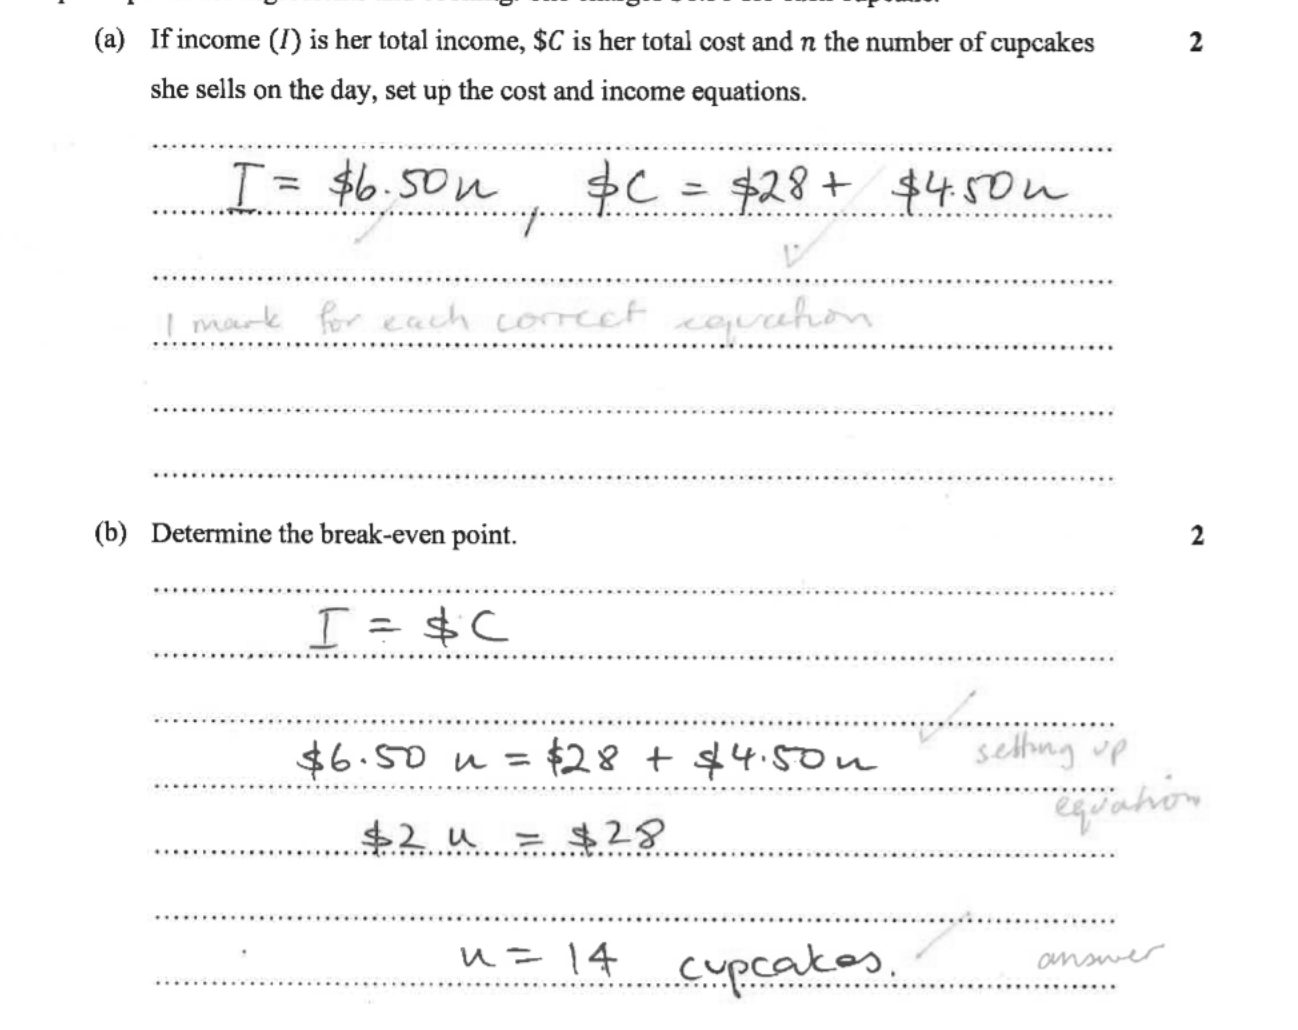 (a) If income (I) is her total income, $C is her total cost and n the number of cupcakes 2
she sells on the day, set up the cost and income equations.
I = $6.50n , $C = $28 + $4.50n
1 mark for each correct equation
(b) Determine the break-even point. 2
I = $C
$6.50 n = $28 + $4.50n setting up
equation
$2 n = $28
n = 14 cupcakes. answer